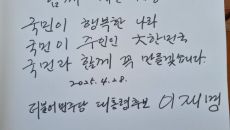 함께
국민이 행복한 나라
국민이 주인인 大한민국
국민과 함께 꼭 만들겠습니다.
2025. 4. 28.
더불어민주당 대통령후보 이재명